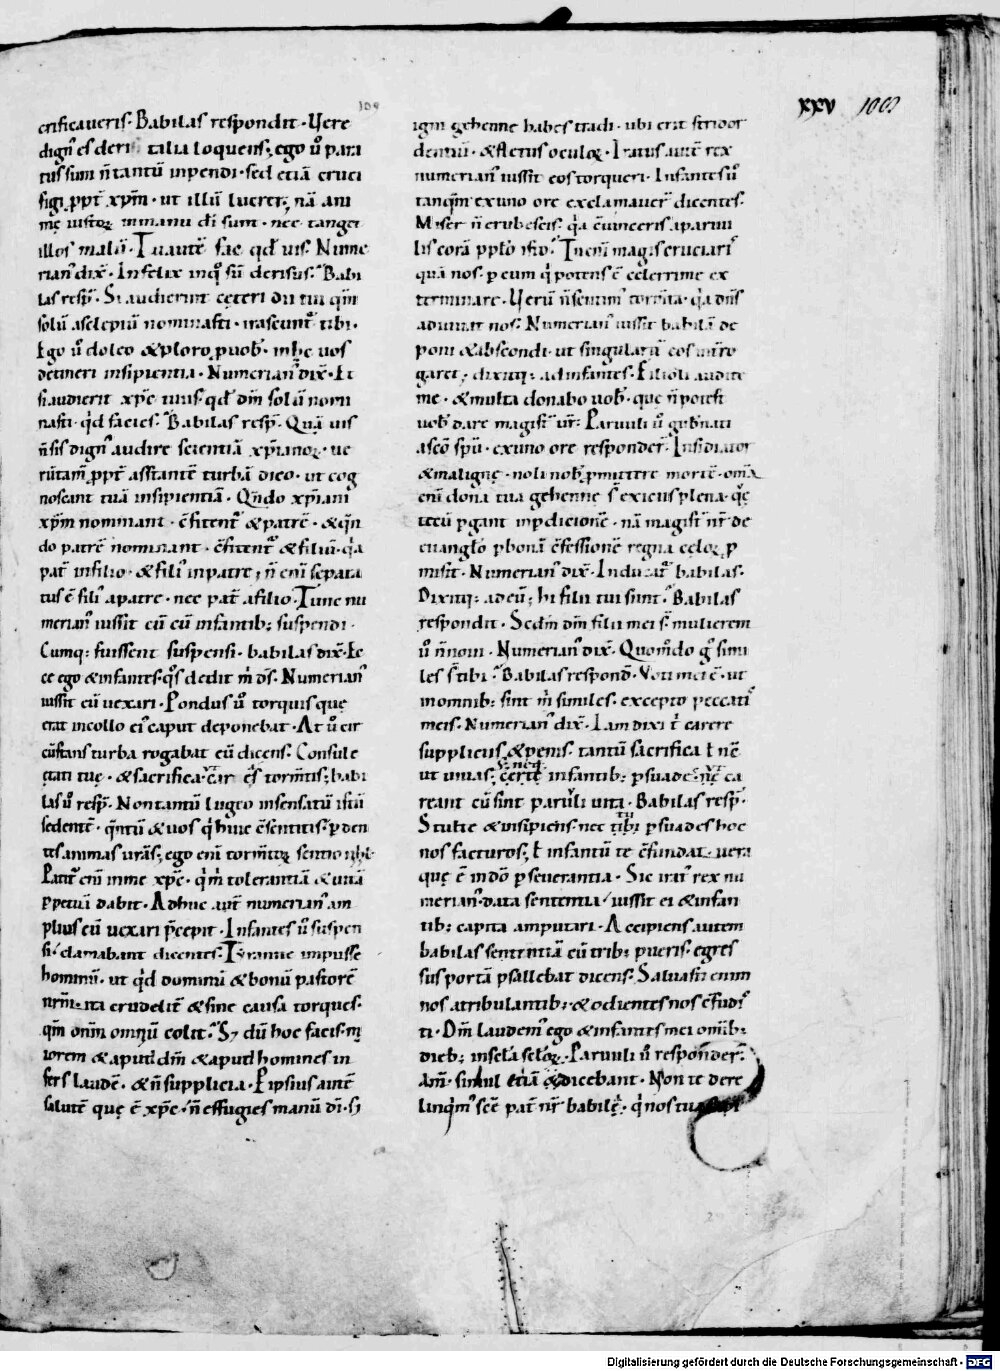 109
xxv 1002
crificaueris. Babilas respondit. Vere
dign᷒ es derisu talia loquens; ego ů para
tus sum ñ tantū inpendi. sed etiā cruci
figi ꝓpt̄ xp̄m. ut illū lucrer; nā ani
mę iustoꝝ in manu dī sunt. nec tanget
illos malū. Tu autē fac qd̄ uis. Nume
rian᷒ dix̄. Infelix inq᷒ sū derisus. Babi
las resp̄. Si audierint cęteri dii tui qm̄
solū asclepiū nominasti. irascunt᷒ tibi.
Ego ů doleo & ploro ꝓ uob̄. in hęc uos
detineri insipientia. Numerian᷒ dix̄. Et
si audierit xp̄c tuus. qd̄ dm̄ solū nomi
nasti. qd facies. Babilas resp̄. Quā uis
ñ sis dign᷒ audire scientiā xp̄ianoꝝ. ue
rūtam̄ ꝓpt̄ asstantē turbā dico. ut cog
noscant tuā insipientiā. Qn̄do xp̄iani
xp̄m nominant. c̄fitent᷒ & patrē. & qn̄
do patrē nominant. c̄fitent᷒ & filiū. qa
pat̄ in filio. & fili᷒ in patre; ñ enī separa
tus ē fili᷒ a patre. nec pat̄ a filio. Tunc nu
merian᷒ iussit eū cū infantib; suspendi.
Cumq; fuissent suspensi. babilas dix̄. Ec
ce ego & infantes. qs dedit m̄ ds̄. Numerian᷒
iussit eū uexari. Pondus ů torquis que
erat in collo ei᷒ caput deponebat. At ů cir
cūstans turba rogabat eū dicens. Consule
ętati tuę. & sacrifica. ut car es torm̄tis; babi
las ů resp̄. Non tantū lugeo insensatū istū
sedentē. qn̄tū & uos q huic c̄sentitis. ꝑden
tes animas urās; ego enī torm̄toꝝ sentio nihil.
Patit᷒ enī in me xp̄c. q m̄ tolerantiā & uitā
ꝑpetuā dabit. Adhuc aut̄ numerian᷒ am
plius eū uexari p̄cepit. Infantes ů suspen
si. clamabant dicentes. Tyranne impiisse
hominū. ut qd dominū & bonū pastorē
nr̄m. ita crudelit̄ & sine causa torques.
qm̄ onīm omniū colit. Sӡ dū hoc facis. m
iorem & aput dm̄ & aput homines in
fers laudē. & ñ supplicia. Ꝑ ipsius autē
salutē que ē xp̄c. ñ effugies manū dī. sӡ
igni gehenne habes tradi. ubi erit stridor
dentiū. & fletus oculoꝝ. Iratus autē rex
numerian᷒ iussit eos torqueri. Infantes ů
tanqm̄ ex uno ore exclamauer̄ dicentes.
Miser ñ erubescis. qa c̄uinceris a paruu
lis corā ppłō isto. Tu enī magis cruciaris
quā nos. ꝑ eum q potens ē celerrime ex
terminare. Verū ñ sentim᷒ torm̄ta. qa dn̄s
adiuuat nos. Numerian᷒ iussit babilā de
poni & abscondi. ut singulariť eos inťro
garet; dixitq; ad infantes. Filioli audite
me. & multa donabo uob̄. que ñ potest
uob̄ dare magist᷒ ur̄. Paruuli ů gub̄nati
a scō spū. ex uno ore responder̄. Insidiator
& maligne. noli nob̄ ꝓmittere mortē. omīa
enī dona tua gehenne s̄ exicus plena. qe
tecū ꝑgant in ꝑdicionē. nā magist᷒ nr̄ de
euangło ꝓ bonā c̄fessionē regna celoꝝ ꝓ
misit. Numerian᷒ dix̄. Inducat᷒ babilas.
Dixitq; ad eū; hi filii tui sunt. Babilas
respondit. Scdm̄ dm̄ filii mei s̄ mulierem
ů ñ noui. Numerian᷒ dix̄. Quom̄do g᷒ simi
les s̄ tibi. Babilas respond̄. Voti mei ē. ut
in omnib; sint m̄ similes. excepto peccatis
meis. Numerian᷒ dix̄. Iam dixi t̄ carere
suppliciis & penis. tantū sacrifica ł nē
ut uiuas; certe infantib; ꝑsuade. ne ca
reant cū sint paruuli uita. Babilas resp̄.
Stulte & insipiens. nec tibi ꝑsuades hoc
nos facturos; ł infantū te c̄fundat. uera
que ē in dn̄o ꝑseuerantia. Sic irat᷒ rex nu
merian᷒. data sententia iussit ei & infan
tib; capita amputari. Accipiens autem
babilas sententiā cū trib; pueris. egres
sus portā psallebat dicens. Saluasti enim
nos a tribulantib;. & odientes nos c̄fudis
ti. Dm̄ laudem᷒ ego & infantes mei omīb;
dieb; in scła scłoꝝ. Paruuli ů responder̄.
Am̄. simul etiā & dicebant. Non te dere
linqm᷒ scē pat̄ nr̄ babilę. q nos tua